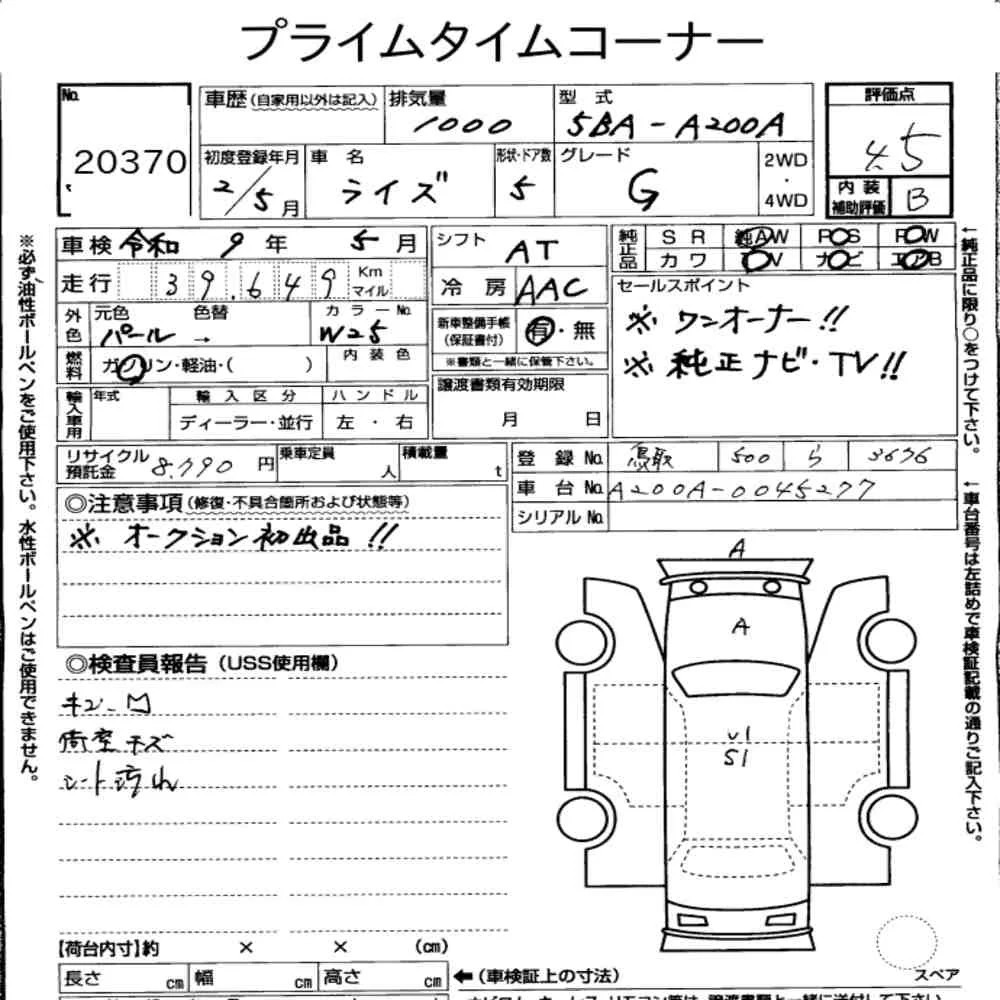 プライムタイムコーナー
No. 20370
車歴(自家用以外は記入) 排気量 1000 型式 5BA-A200A
評価点 4.5
初度登録年月 2/5月 車名 ライズ 形状・ドア数 5 グレード G 2WD・4WD
内装補助評価 B
車検 令和 9年 5月
走行 39.649 Km マイル
外色 元色 パール 色替 → カラーNo. W25
燃料 ガソリン・軽油・( ) 内装色
輸入車用 年式 輸入区分 ディーラー・並行 ハンドル 左・右
シフト AT
冷房 AAC
新車整備手帳(保証書付) 有・無
※書類と一緒に保管下さい。
譲渡書類有効期限 月 日
純正品 SR 純AW PS PW
カワ TV ナビ エアB
セールスポイント
※ ワンオーナー!!
※ 純正ナビ・TV!!
リサイクル預託金 8.790円 乗車定員 人 積載量 t
登録No. 鳥取 500 ら 3676
車台No. A200A-0045277
シリアルNo.
◎注意事項(修復・不具合箇所および状態等)
※ オークション初出品!!
◎検査員報告(USS使用欄)
キズ凹
シート汚れ
A
A
U1
S1
スペア
【荷台内寸】約 × × (cm)
長さ cm 幅 cm 高さ cm ←(車検証上の寸法)
※必ず油性ボールペンをご使用下さい。水性ボールペンはご使用できません。
←純正品に限り○をつけて下さい。
←車台番号は左詰めで車検証記載の通りご記入下さい。